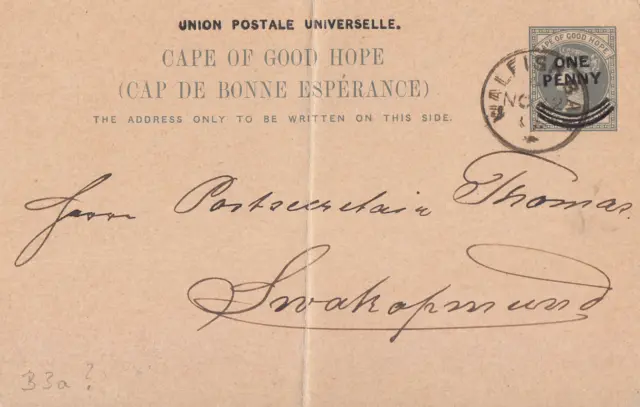 UNION POSTALE UNIVERSELLE.
CAPE OF GOOD HOPE
(CAP DE BONNE ESPÉRANCE)
THE ADDRESS ONLY TO BE WRITTEN ON THIS SIDE.
CAPE OF GOOD HOPE
ONE
PENNY
WALFIS BA
NO 2
Herrn Postsecretair Thomas.
Swakopmund
B3a?